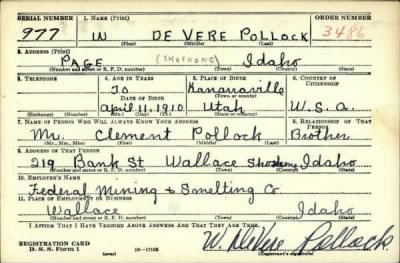 SERIAL NUMBER 1. NAME (Print) ORDER NUMBER
977 W DE VERE POLLOCK 3486
(First) (Middle) (Last)
2. ADDRESS (Print)
PAGE (SHOSHONE) Idaho
(Number and street or R. F. D. number) (Town) (County) (State)
3. TELEPHONE 4. AGE IN YEARS 5. PLACE OF BIRTH 6. COUNTRY OF CITIZENSHIP
30 Kanarraville
DATE OF BIRTH
April 11, 1910 Utah U.S.a.
(Exchange) (Number) (Mo.) (Day) (Yr.) (State or country)
7. NAME OF PERSON WHO WILL ALWAYS KNOW YOUR ADDRESS 8. RELATIONSHIP OF THAT PERSON
Mr. Clement Pollock Brother
(Mr., Mrs., Miss) (First) (Middle) (Last)
9. ADDRESS OF THAT PERSON
219 Bank St Wallace Shoshone Idaho
(Number and street or R. F. D. number) (Town) (County) (State)
10. EMPLOYER'S NAME
Federal Mining & Smelting Co
11. PLACE OF EMPLOYMENT OR BUSINESS
Wallace Idaho
(Number and street or R. F. D. number) (Town) (County) (State)
I AFFIRM THAT I HAVE VERIFIED ABOVE ANSWERS AND THAT THEY ARE TRUE.
REGISTRATION CARD
D. S. S. Form 1 (over) W. DeVere Pollock
(Registrant's signature)